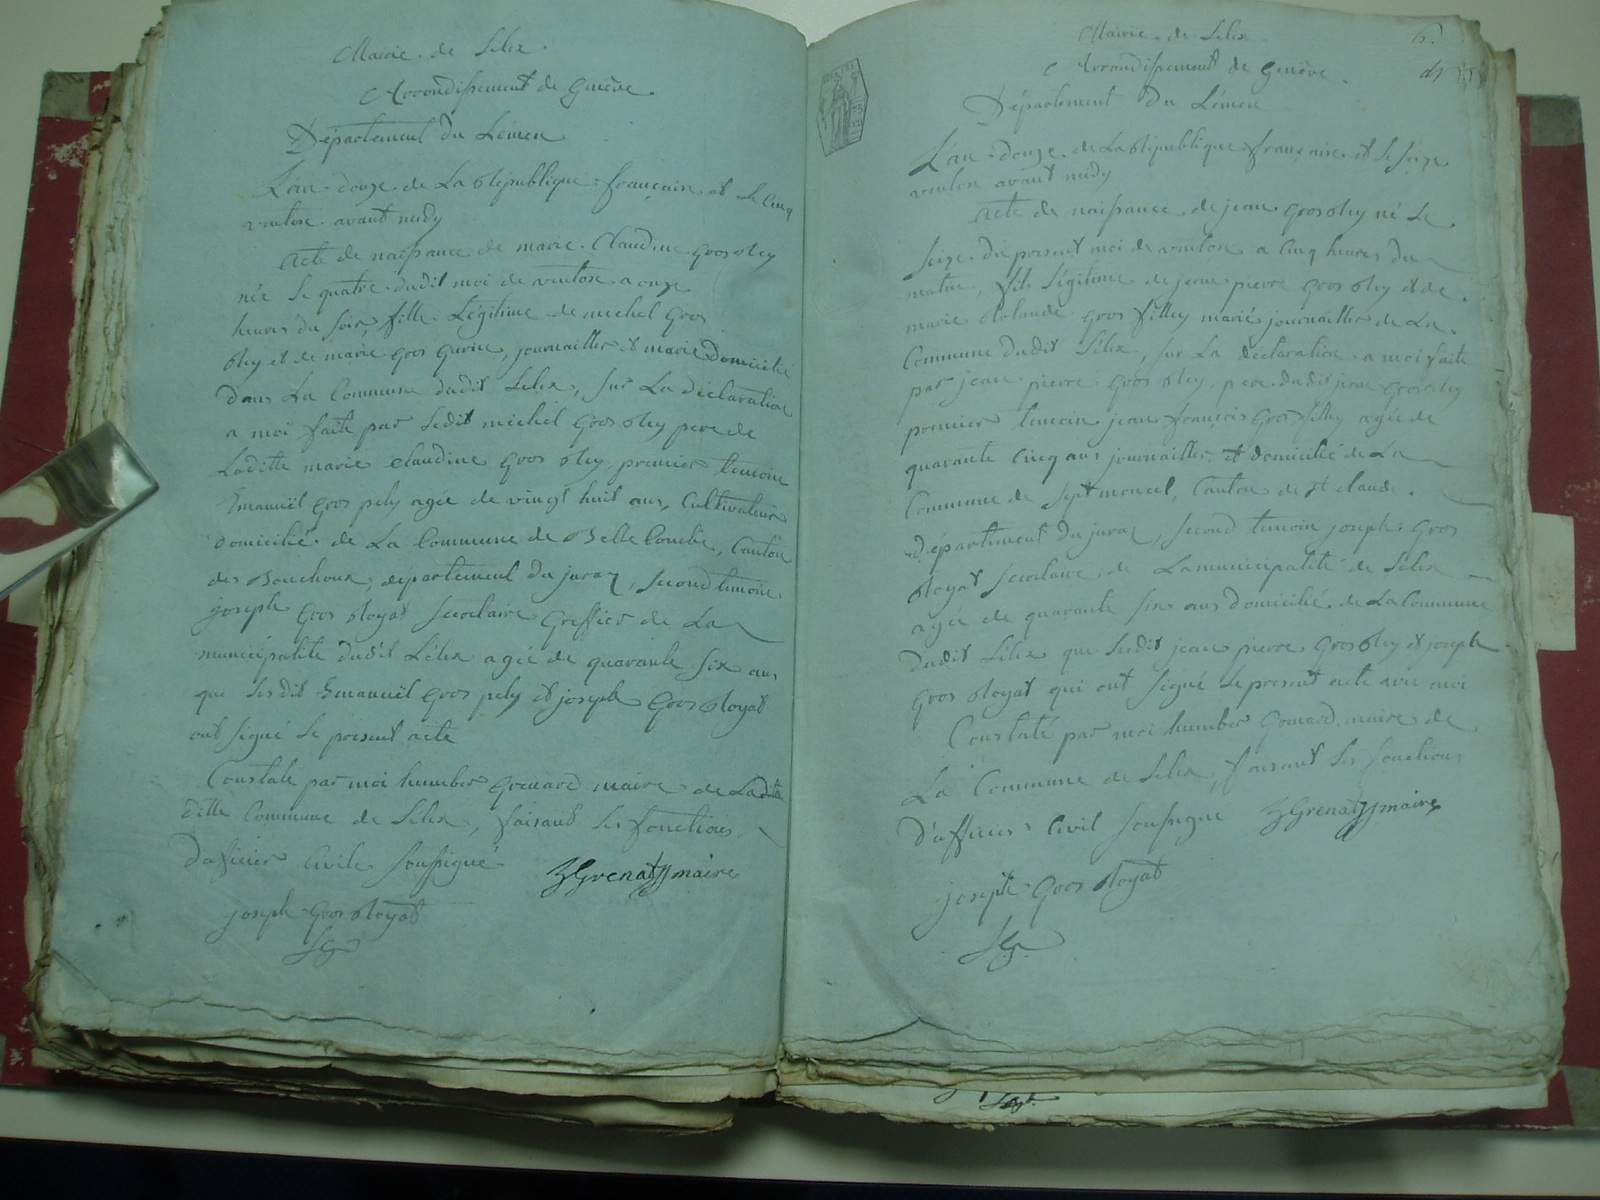 Mairie de Lélex.
Arrondissement de Genève.
Département du Lémen
L'an douze de La République française et Le Cinq
ventose avant midy
Acte de naissance de marie Claudine Gros
née Le quatre dudit moi de ventose a onze
heures du soir, fille Légitime de michel Gros
et de marie Gros Gurin, journaillier et marié Domicilié
Dans La Commune dudit Lélex, sur La déclaration
a moi faite par Ledit michel Gros pere de
Laditte marie Claudine Gros premier temoin
Emanuël Gros pely agée de vingt huit ans, Cultivateur
domicilié de La Commune de Belle Combe, Canton
des Bouchoux, département du juraz, second temoin
joseph Gros Royat secrétaire Greffier de La
municipalité dudit Lélex agée de quarante six ans
que Lesdit Emanuël Gros pely et joseph Gros Royat
ont signé Le présent acte
Constaté par moi humber Grenard maire de Ladite
ditte Commune de Lélex, faisant Les fonctions
D'officier Civile soussigné Grenat maire
joseph Gros Royat
Mairie de Lélex
Arrondissement de Genève.
Département Du Lémen
L'an douze de La République française et Le seize
ventose avant midy
Acte de naissance de jean Gros né Le
seize du présent moi de ventose a Cinq heures du
matin, fils Légitime de jean pierre Gros et de
marie Rolande Gros filley marié journaillier de La
Commune dudit Lélex, sur La déclaration a moi faite
par jean pierre Gros pere dudit jean Gros
premier temoin jean françois Gros filley agée de
quarante Cinq ans journaillier et domicilié de La
Commune de Septmoncel, Canton de St claude.
département du juraz, second temoin joseph Gros
Royat secrétaire de La municipalité de Lélex
agée de quarante six ans domicilié de La Commune
dudit Lélex que Lesdit jean pierre Gros et joseph
Gros Royat qui ont signé Le présent acte avec moi
Constaté par moi humber Grenard maire de
La Commune de Lélex, faisant Les fonctions
D'officier Civil soussigné Grenat maire
joseph Gros Royat